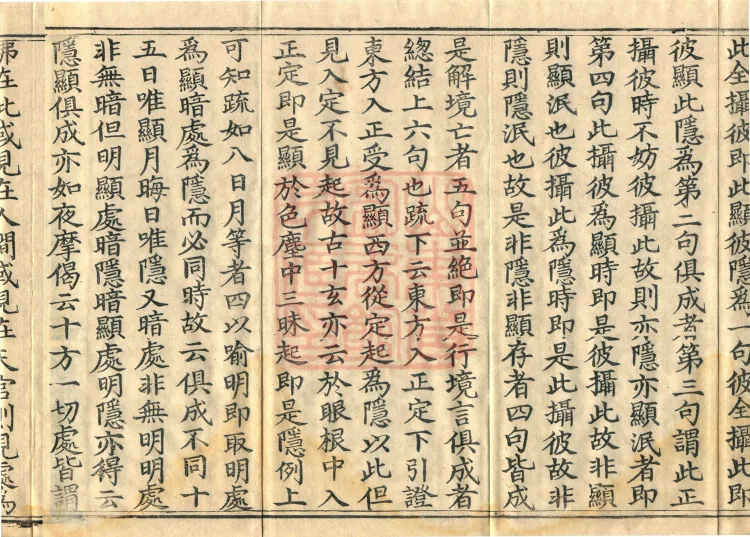 此全攝彼即此顯彼隱為一句彼全攝此即
彼顯此隱為第二句俱成者第三句謂此正
攝彼時不妨彼攝此故則亦隱亦顯泯者即
第四句此攝彼為顯時即是彼攝此故非顯
則顯泯也彼攝此為隱時即是此攝彼故非
隱則隱泯也故是非隱非顯存者四句皆成
是解境亡者五句並絕即是行境言俱成者
緫結上六句也疏下云東方入正定下引證
東方入正受為顯西方從定起為隱以此但
見入定不見起故古十玄亦云於眼根中入
正定即是顯於色塵中三昧起即是隱例上
可知疏如八日月等者四以喻明即取明處
為顯暗處為隱而必同時故云俱成不同十
五日唯顯月晦日唯隱又暗處非無明明處
非無暗但明顯處暗隱暗顯處明隱亦得云
隱顯俱成亦如夜摩偈云十方一切處皆謂
佛在此或見在人間或見在天宮則見處為